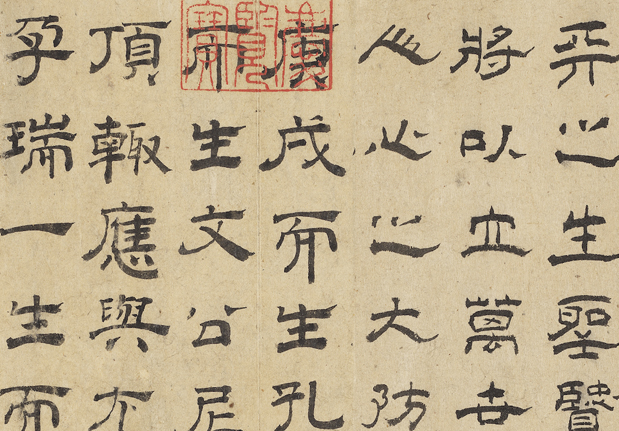 天之生聖賢
將以立萬世
人心之大防
庚戌而生孔
而生文公尼
頂輒應與不
孕瑞一生而